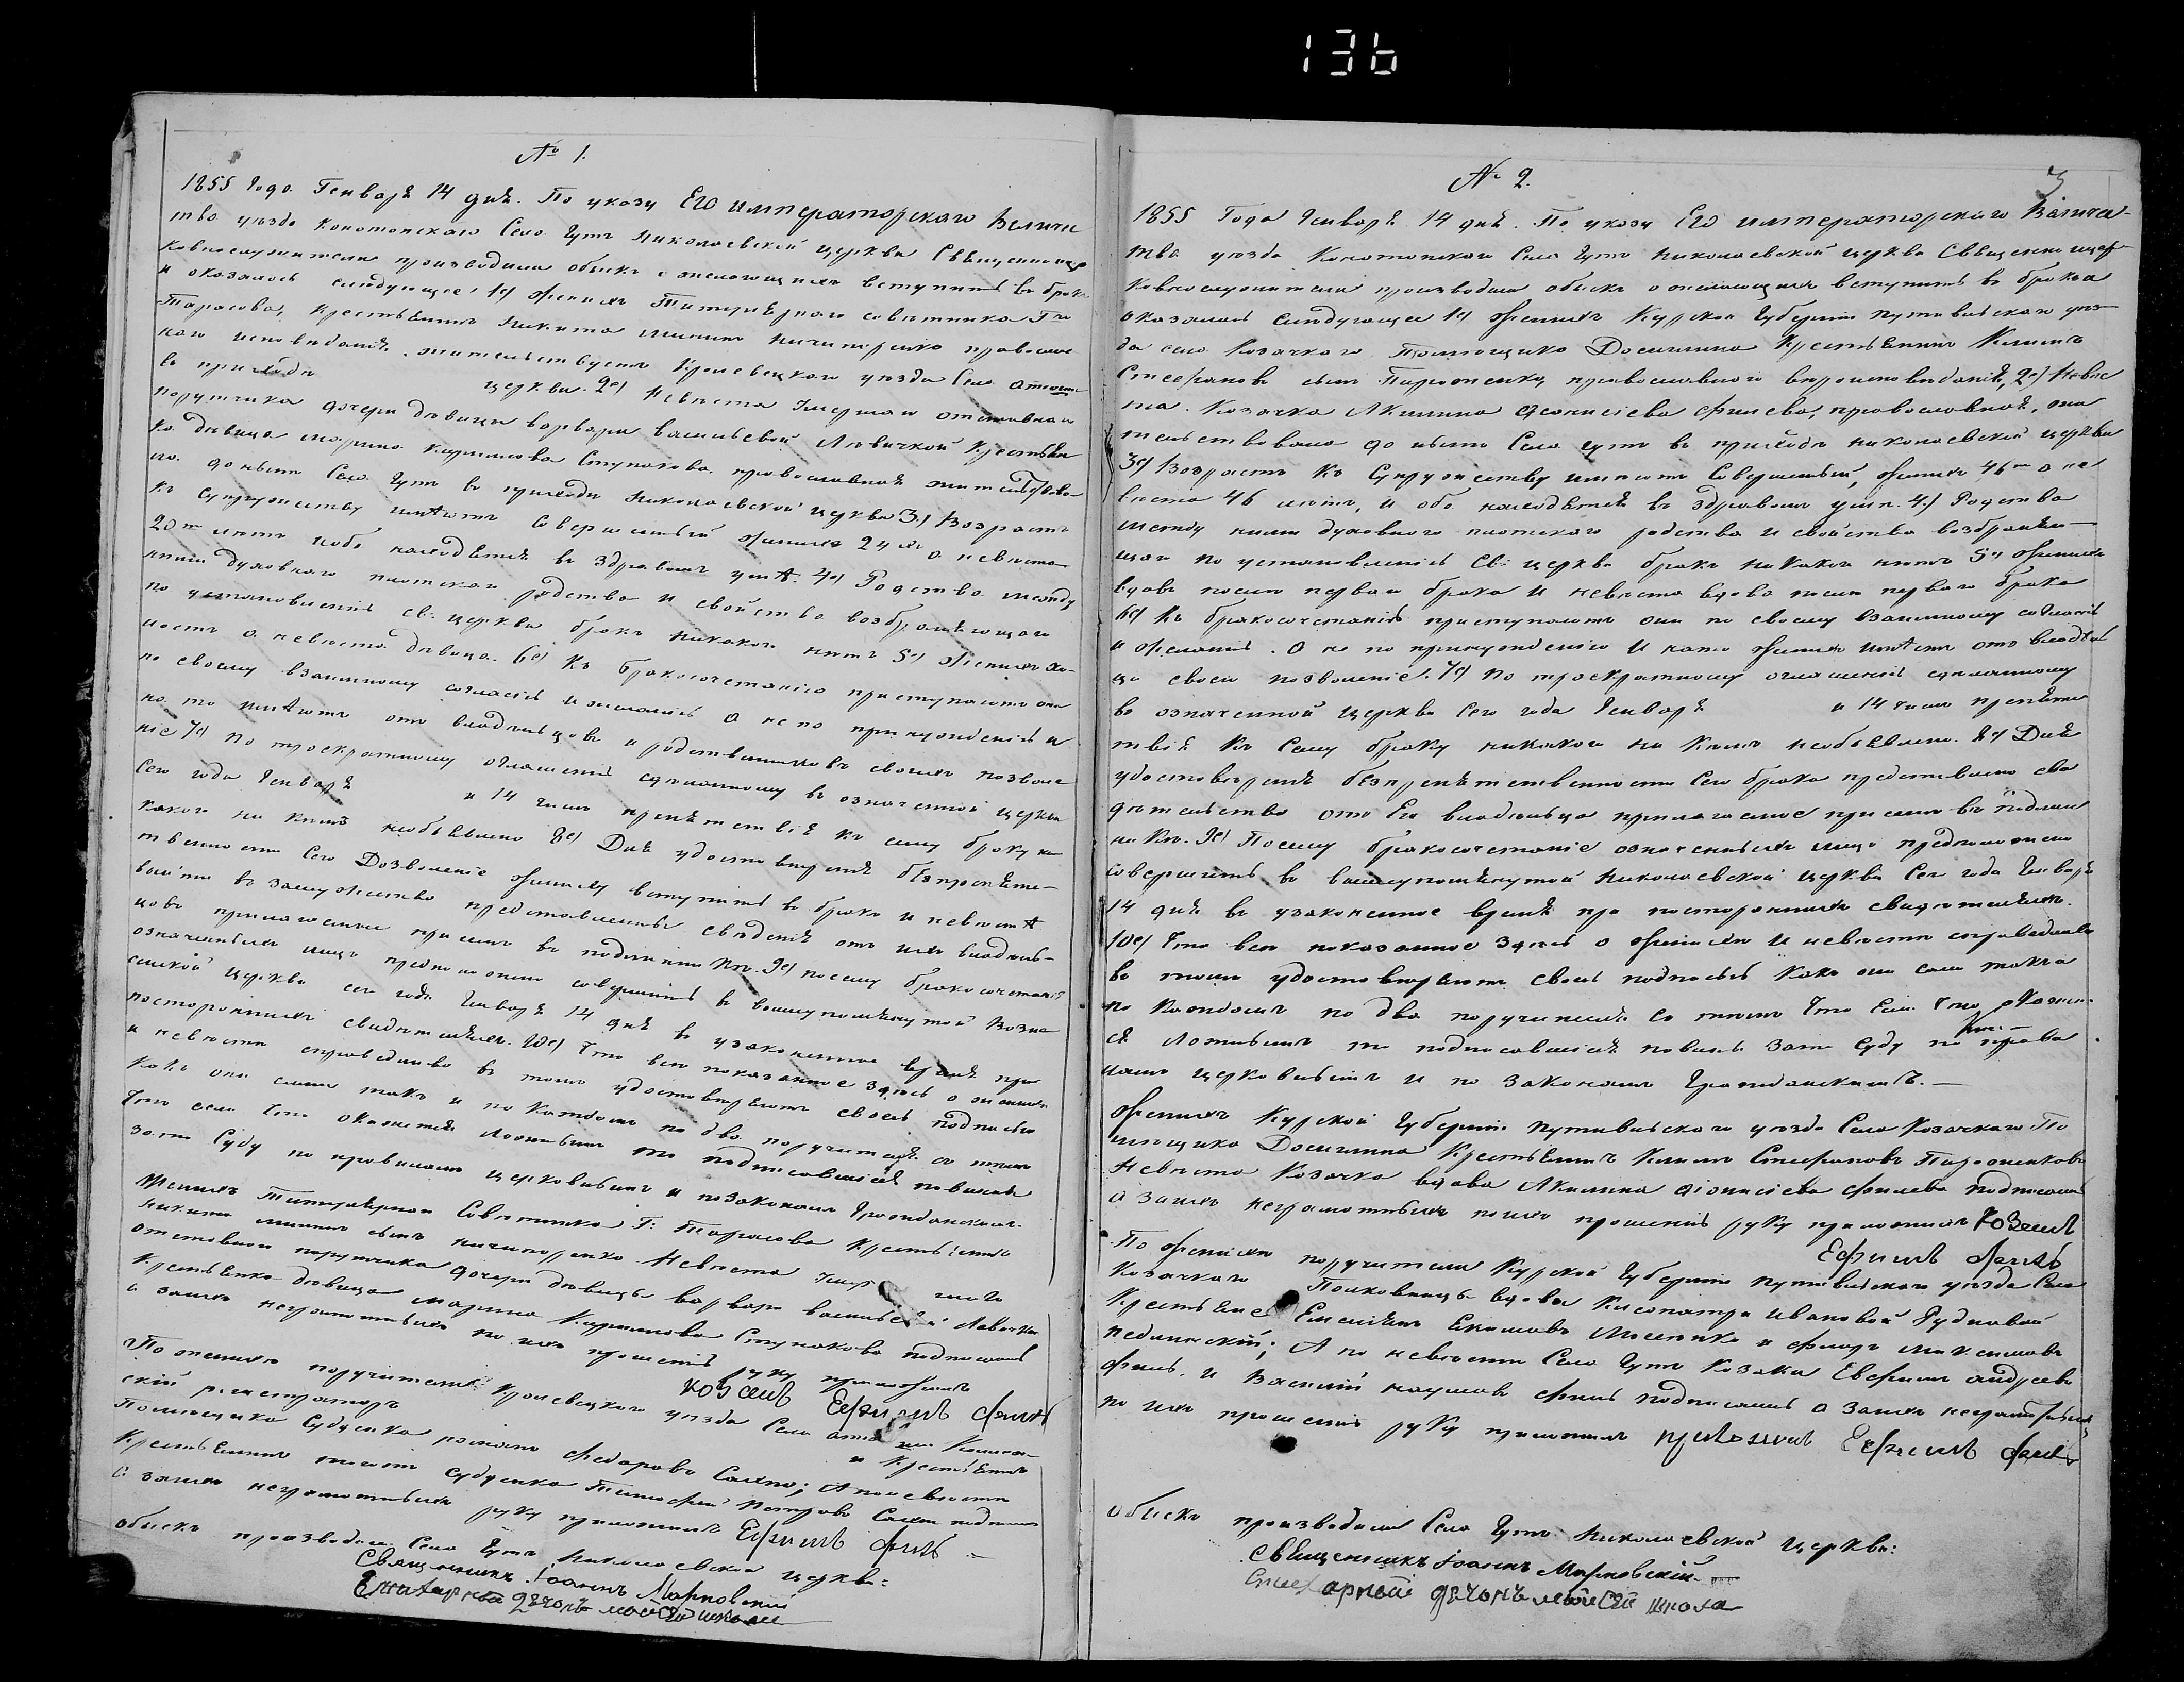 136
№ 1.
1855 Года Генваря 14 дня. По указу Его Императорскаго Величес
тва уезда Конотопскаго Села Гутъ Николаевской церкви Священноцер
ковнослужители производили обыскъ о желающихъ вступить въ бракъ
и оказалось следующее: 1е) Женихъ Титулярнаго советника Г.
Тарасова, крестьянинъ Никита Мининъ Ничипоренко православ
наго исповеданія жительствуетъ Кролевецкаго уезда Села
въ приходе церкви. 2е) Невеста умершаго отставнаго
порутчика дочери девицы Варвары Васильевой Левицкой крестьян
ка девица Марина Кирилова Ступакова, православная жительствова
ла доныне Села Гутъ въ приходе Николаевской церкви 3е) Возрастъ
къ супружеству имеютъ совершенный женихъ 24 а невеста
20ть летъ и оба находятся въ здравомъ уме. 4е) Родства между
ними духовнаго плотскаго родства и свойства возбраняющаго
по установленію св: церкви бракъ никакого нетъ 5е) Женихъ хо-
лостъ а невеста девица. 6е) Къ бракосочетанію приступаютъ они
по своему взаимному согласію и желанію а не по принужденію и
на то имеютъ отъ владельцовъ и родственниковъ своихъ позволе
ніе 7е) По троекратному оглашенію сделанному въ означенной церкви
Сего года Генваря и 14 числъ препятствія къ сему браку ни
какого ни кемъ необъявлено 8е) Для удостоверенія безпрепятс-
твенности сего Дозволеніе жениху вступить въ бракъ и невесте
выйти въ замужество представлены сведенія отъ ихъ владель-
цовъ прилагаемые при семъ въ подлинни ке. 9е) посему бракосочетаніе
означенныхъ лицъ предположено совершить въ вышеупомянутой Возне
сенской церкви сего года Генваря 14 дня въ узаконенное время при
постороннихъ свидетеляхъ. 10е) Что все показанное здесь о женихе
и невесте справедливо въ томъ удостоверяютъ своею подписью
какъ они сами такъ и по каждомъ по два поручителя съ темъ
что если что окажется ложнымъ то подписавшіеся повинны
зато суду по правиламъ церковнымъ и позаконамъ Гражданскимъ.
Женихъ Титулярнаго Советника Г: Тарасова крестьянинъ
Никита Мининъ сынъ Ничипоренко Невеста
отставнаго порутчика дочери девицы Варвары Васильевой Левицкой
Крестьянка девица Марина Кирилова Ступакова подписались
а заихъ неграмотныхъ по ихъ прошенію руку приложилъ
козакъ Ефимъ Филь
По женихе поручители Кролевецкаго уезда Села
скій регистраторъ и крестьянинъ
Помещика Судіенка романъ Федоровъ Сахно; А по невесте
Крестьянинъ тогожъ Судіенка Тимофей Петровъ Сахно подписались
а заихъ неграмотныхъ руку приложилъ Ефимъ Филь.
обыскъ производили Села Гутъ Николаевской церкви:
Священникъ Іоаннъ Марковскій
№ 2.
3
1855 Года Генваря 14 дня. По указу Его Императорскаго Величес-
тва уезда Конотопскаго Села Гутъ Николаевской церкви Священноцер
ковнослужители производили обыскъ о желающихъ вступить въ бракъ и
оказалось следующее 1е) Женихъ Курской Губерніи Путивльскаго уез
да села Козачкаго Помещика Крестьянинъ Климъ
Стефановъ сынъ Пироженко, православнаго вероисповеданія, 2е) Невес
та. Козачка Акилина Діонисіева Филева, православная, жи
тельствовала доныне Села Гутъ въ приходе Николаевской церкви
3е) Возрастъ къ Супружеству имеютъ совершенный, женихъ 46ть а не
веста 46 летъ, и оба находятся въ здравомъ уме. 4е) Родства
между ними духовнаго плотскаго родства и свойства возбраняю-
щаго по установленію Св: церкви бракъ никакого нетъ 5е) Женихъ
вдовъ после перваго брака и невеста вдова после перваго брака
6е) Къ бракосочетанію приступаютъ они по своему взаимному согласію
и желанію. А не по принужденію и како женихъ имеетъ отъ владель
ца своего позволеніе. 7е) По троекратному оглашенію сделанному
въ означенной церкви Сего года Генваря и 14 числъ препятс
твія къ сему браку никакого ни кемъ необъявлено. 8е) Для
удостоверенія безпрепятственности сего брака представлено сви
детельство отъ Его владельца прилагаемое при семъ въ подлин
ни ке. 9е) Посему бракосочетаніе означенныхъ лицъ предположено
совершить въ вышеупомянутой Николаевской церкви Сего года Генваря
14 дня въ узаконенное время при постороннихъ свидетеляхъ.
10е) Что все показанное здесь о женихе и невесте справедливо
въ томъ удостоверяютъ своею подписью како они сами такъ и
по каждомъ по два поручителя съ темъ что Если что окажет
ся ложнымъ то подписавшіеся повинны зато Суду по прави
ламъ церковнымъ и по законамъ Гражданскимъ.—
Женихъ Курской Губерніи Путивльскаго уезда Села Козачкаго По
мещика Крестьянинъ Климъ Стефановъ Пироженковъ
Невеста Козачка вдова Акилина Діонисіева Филева подписались
а заихъ неграмотныхъ поихъ прошенію руку приложилъ Козакъ
Ефимъ Филь
По женихе поручители Курской Губерніи Путивльскаго уезда Села
Козачкаго Полковницы вдовы Клеопатры Ивановой Рудиовой
Крестьяне Емельянъ Екимовъ и Федоръ Максимовъ
; А по невесте Села Гутъ Козаки Евфимъ Андреевъ
Филь. и Василій Наумовъ Филь подписались а заихъ неграмотныхъ
по ихъ прошенію руку приложилъ Ефимъ Филь
обыскъ производили Села Гутъ Николаевской церкви:
Священникъ Іоаннъ Марковскій